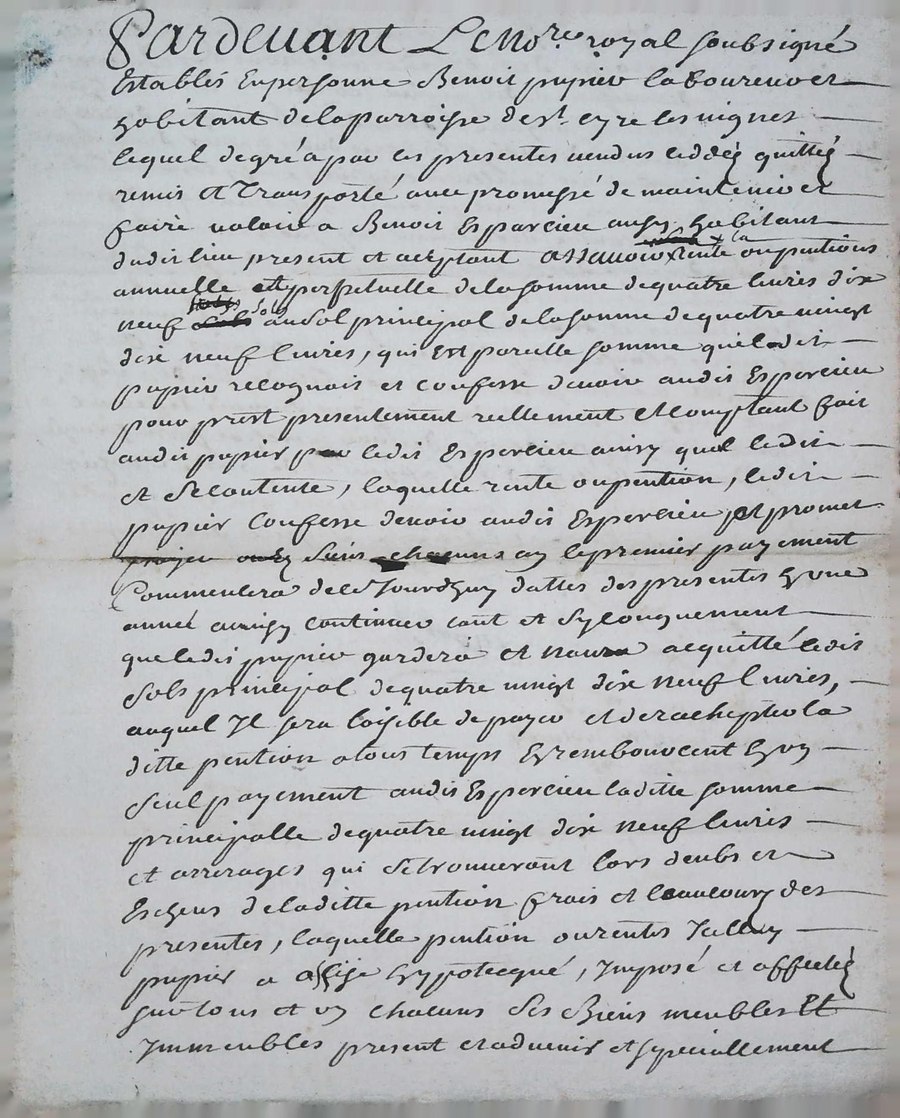 Pardevant Le no.re royal soubsigné
Establés En personne Benoit pupier laboureur et
habitant de la parroisse de st. cyre les vignes
lequel de gré a par les presentes vendus ceddés quittés
remis et Transporté avec promesse de maintenir et
faire valoir a Benoit Esparcieu aussy habitant
dudit lieu present et acceptant assavoir x la rente ou pention
annuelle et perpetuelle de la somme de quatre livres dix
neuf sols au sol principal de la somme de quatre vingt
dix neuf livres, qui Est pareille somme que ledit
pupier recognoit et confesse devoir audit Esparcieu
pour prest presentement reellement et comptant fait
audit pupier par ledit Esparcieu ainsy quil le dit
et se contente, laquelle rente ou pention, ledit
pupier Confesse devoir audit Esparcieu et promet
payer chacuns an le premier payement
Commencera de ce Jourdhuy dattes des presentes En une
année ainsy continuer tant et Sy longuement
que ledit pupier gardera et naura acquitté ledit
Sols principal de quatre vingt dix neuf livres,
auquel Il sera loisible de payer et de rachepter la
ditte pention a tous temps En rembourcent En un
Seul payement audit Esparcieu laditte somme
principalle de quatre vingt dix neuf livres
et arrerages qui se trouveront lors deubs et
Escheus de laditte pention frais et loyaucouts des
presentes, laquelle pention ou rentes Icelluy
pupier a assise hypotecqué, Imposé et affectés
sur tous et un chacuns Ses Biens meubles Et
Immeubles present et advenir et speciallement